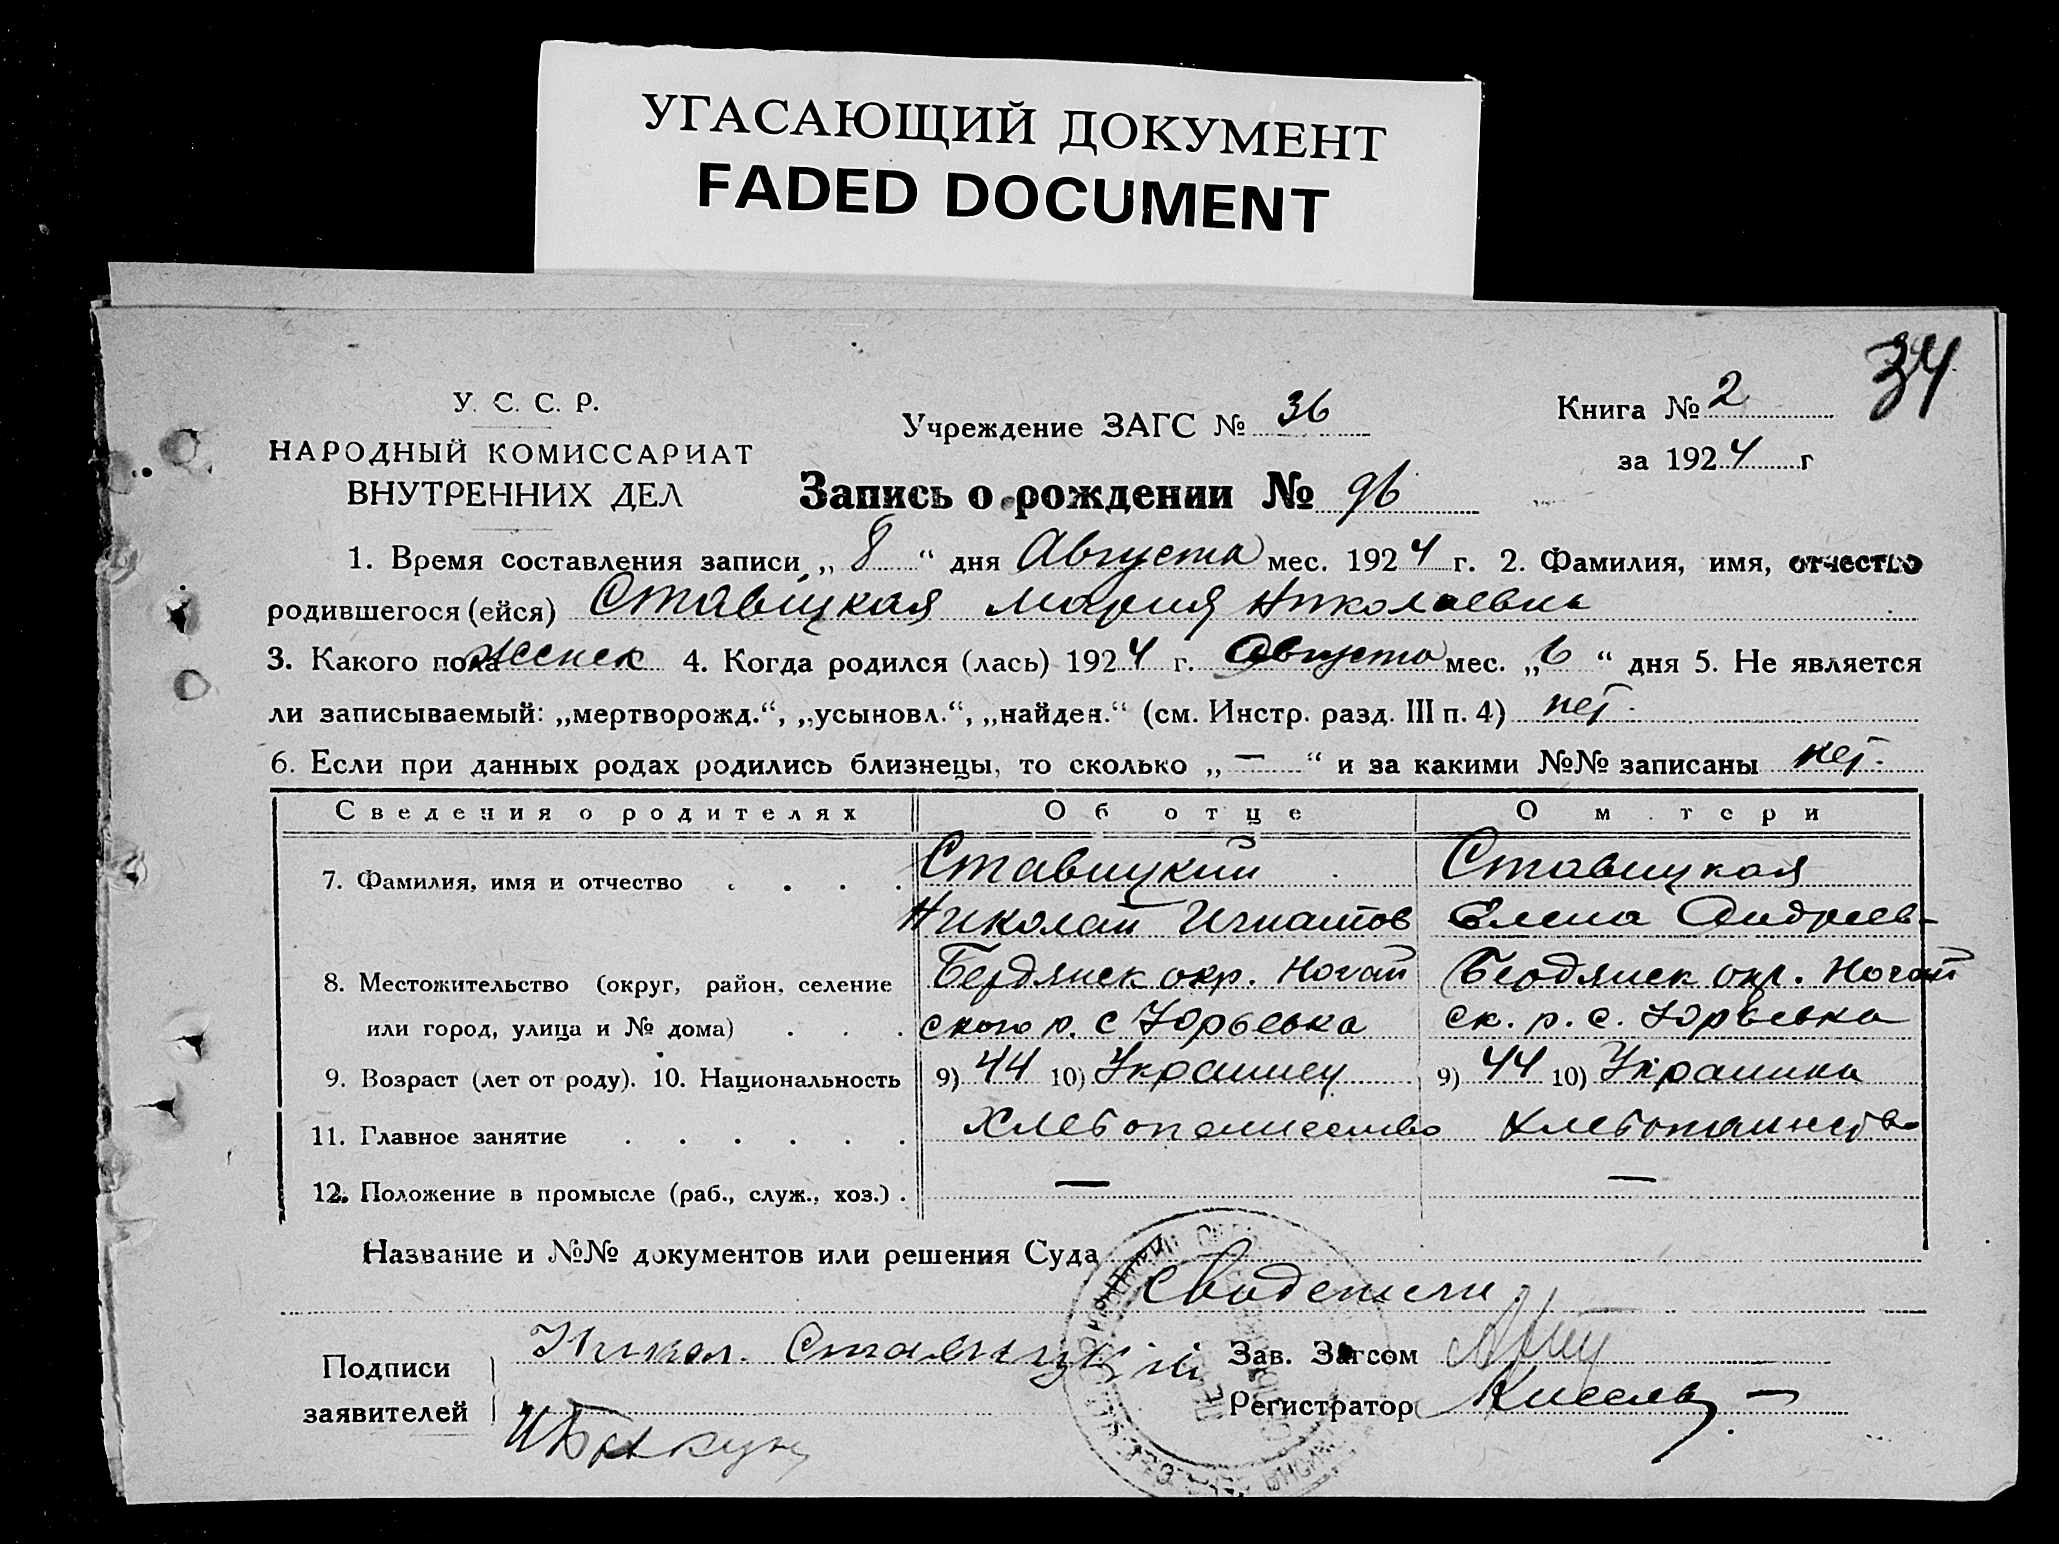 УГАСАЮЩИЙ ДОКУМЕНТ
FADED DOCUMENT
34
У. С. С. Р.
НАРОДНЫЙ КОМИССАРИАТ
ВНУТРЕННИХ ДЕЛ
Учреждение ЗАГС № 36
Книга № 2
за 1924 г
Запись о рождении № 96
1. Время составления записи „ 8 “ дня Августа мес. 1924 г. 2. Фамилия, имя, отчество
родившегося (ейся) Ставицкая Мария Николаевна
3. Какого пола женск 4. Когда родился (лась) 1924 г. Августа мес. „ 6 “ дня 5. Не является
ли записываемый: „мертворожд.“, „усыновл.“, „найден.“ (см. Инстр. разд. III п. 4) нет.
6. Если при данных родах родились близнецы, то сколько „ — “ и за какими №№ записаны нет.
Сведения о родителях Об отце О м тери
7. Фамилия, имя и отчество . . . . Ставицкий Ставицкая
Николай Игнатов Елена Андреев-
8. Местожительство (округ, район, селение Бердянск окр. Ногай Бердянск окр. Ногай
или город, улица и № дома) . . . ского р. с Юрьевка ск. р. с. Юрьевка
9. Возраст (лет от роду). 10. Национальность 9) 44 10) Украинец 9) 44 10) Украинка
11. Главное занятие . . . . . . Хлебопашество Хлебопашество
12. Положение в промысле (раб., служ., хоз.) . — —
Название и №№ документов или решения Суда
Свидетели
Подписи Никол. Ставицкий Зав. Загсом
заявителей Регистратор Кисель